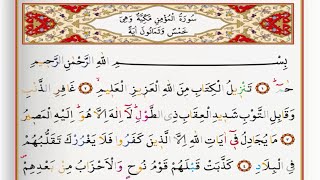 سُورَةُ الْمُؤْمِنِ مَكِّيَّةٌ وَهِيَ
خَمْسٌ وَثَمَانُونَ آيَةً
بِسْمِ اللهِ الرَّحْمٰنِ الرَّحِيمِ
حٰمٓ ۝١ تَنْزِيلُ الْكِتَابِ مِنَ اللهِ الْعَزِيزِ الْعَلِيمِ ۝٢ غَافِرِ الذَّنْبِ
وَقَابِلِ التَّوْبِ شَدِيدِ الْعِقَابِ ذِي الطَّوْلِ لَٓا اِلٰهَ اِلَّا هُوَ اِلَيْهِ الْمَصِيرُ
۝٣ مَا يُجَادِلُ فِٓي اٰيَاتِ اللهِ اِلَّا الَّذِينَ كَفَرُوا فَلَا يَغْرُرْكَ تَقَلُّبُهُمْ
فِي الْبِلَادِ ۝٤ كَذَّبَتْ قَبْلَهُمْ قَوْمُ نُوحٍ وَالْاَحْزَابُ مِنْ بَعْدِهِمْ